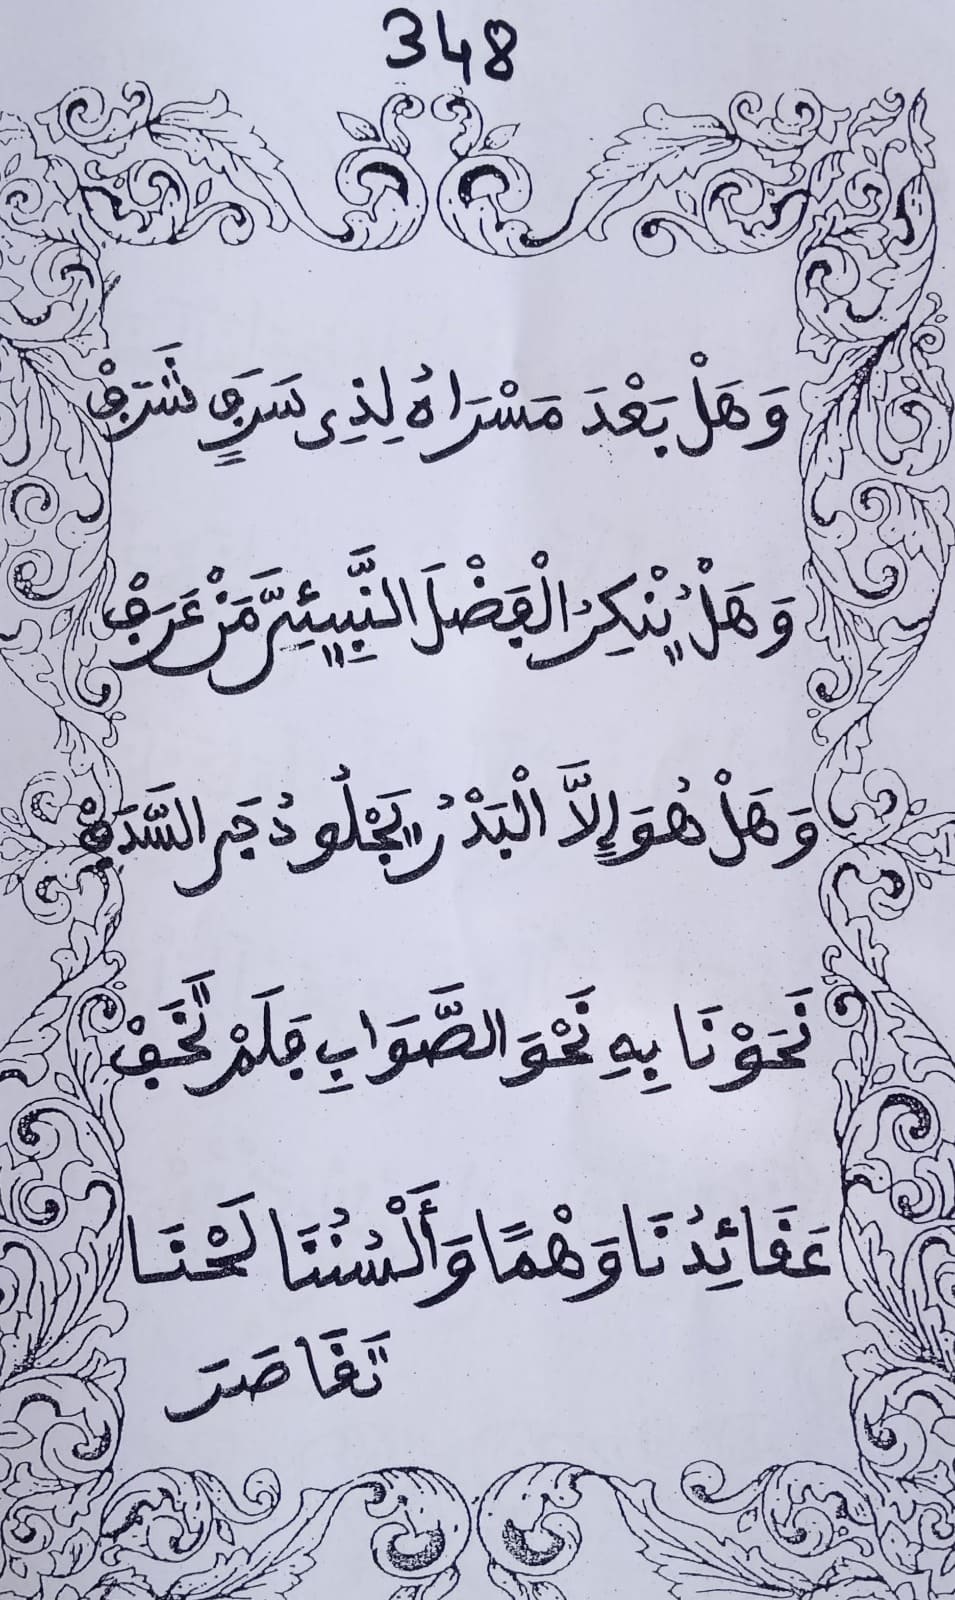 348
وَهَلْ بَعْدَ مَسْرَاهُ لِذِى سَرَفٍ شَرَفْ
وَهَلْ يُنْكِرُ الْفَضْلَ النَّبِيئِيَّ مَنْ عَرَفْ
وَهَلْ هُوَ إِلاَّ الْبَدْرُ يَجْلُو دُجَى السَّدَفْ
نَحَوْنَا بِهِ نَحْوَ الصَّوَابِ فَلَمْ تَخَفْ
عَقَائِدُنَا وَهْمًا وَأَلْسُنُنَا لَحْنَا
تَقَاصَرَ